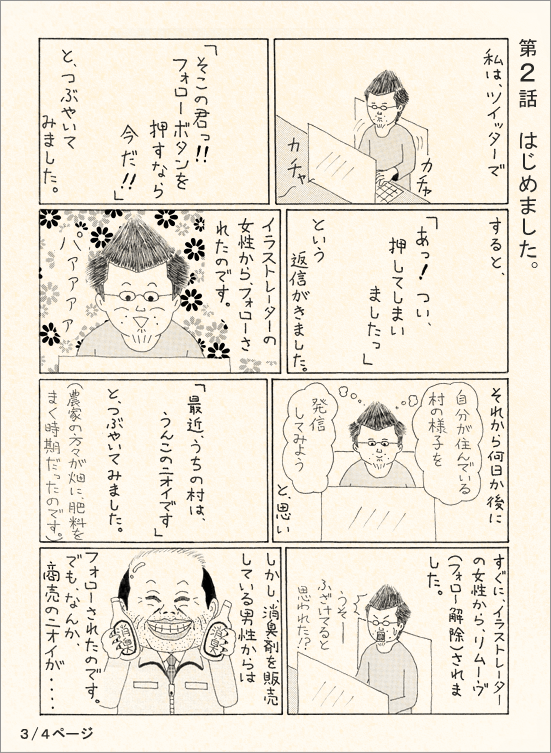 第2話 はじめました。
私は、ツイッターで
カチャ
カチャ
「そこの君っ!!
フォローボタンを
押すなら
今だ!!」
と、つぶやいて
みました。
すると、
「あっ!つい、
押してしまい
ましたっ」
という
返信がきました。
イラストレーターの
女性から、フォローさ
れたのです。
パァァァァ
それから何日か後に
自分が住んでいる
村の様子を
発信
してみよう
と、思い
「最近、うちの村は、
うんこのニオイです」
と、つぶやいてみました。
(農家の方々が畑に、肥料を
まく時期だったのです。)
すぐに、イラストレーター
の女性から、リムーヴ
(フォロー解除)されま
した。
うそー
ふざけてると
思われた!?
しかし、消臭剤を販売
している男性からは
フォローされたのです。
でも、なんか、
商売のニオイが・・・・
消臭
消臭
3/4ページ